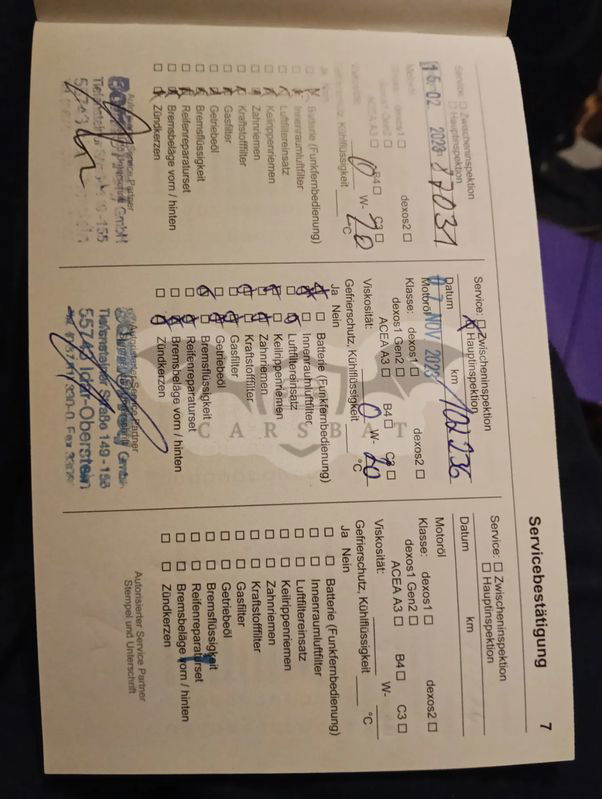 Servicebestätigung
7
Service: □ Zwischeninspektion
□ Hauptinspektion
15. 02. 2023 87031
Motoröl
Klasse: dexos1 □ dexos2 □
dexos1 Gen2 □
ACEA A3 □ B4 □ C3 □
Viskosität: 0 W- 20
Gefrierschutz, Kühlflüssigkeit °C
Ja Nein
Batterie (Funkfernbedienung)
Innenraumluftfilter
Luftfiltereinsatz
Keilrippenriemen
Zahnriemen
Kraftstofffilter
Gasfilter
Getriebeöl
Bremsflüssigkeit
Reifenreparaturset
Bremsbeläge vorn / hinten
Zündkerzen
Autorisierter Service Partner
GmbH
Service: □ Zwischeninspektion
Hauptinspektion
Datum km
07. NOV. 2023 102236
Motoröl
Klasse: dexos1 □ dexos2 □
dexos1 Gen2 □
ACEA A3 □ B4 □ C3 □
Viskosität: 0 W- 20
Gefrierschutz, Kühlflüssigkeit °C
Ja Nein
Batterie (Funkfernbedienung)
Innenraumluftfilter
Luftfiltereinsatz
Keilrippenriemen
Zahnriemen
Kraftstofffilter
Gasfilter
Getriebeöl
Bremsflüssigkeit
Reifenreparaturset
Bremsbeläge vorn / hinten
Zündkerzen
Autorisierter Service Partner
GmbH
Tiefensteiner Straße 149 -155
55743 Idar-Oberstein
Service: □ Zwischeninspektion
□ Hauptinspektion
Datum km
Motoröl
Klasse: dexos1 □ dexos2 □
dexos1 Gen2 □
ACEA A3 □ B4 □ C3 □
Viskosität: W-
Gefrierschutz, Kühlflüssigkeit °C
Ja Nein
□ □ Batterie (Funkfernbedienung)
□ □ Innenraumluftfilter
□ □ Luftfiltereinsatz
□ □ Keilrippenriemen
□ □ Zahnriemen
□ □ Kraftstofffilter
□ □ Gasfilter
□ □ Getriebeöl
□ □ Bremsflüssigkeit
□ □ Reifenreparaturset
□ □ Bremsbeläge vorn / hinten
□ □ Zündkerzen
Autorisierter Service Partner
Stempel und Unterschrift
CARSBAT